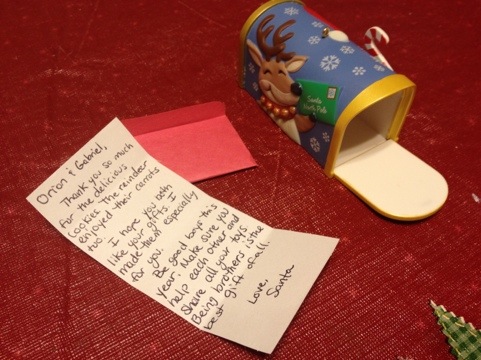 Orion & Gabriel,
Thank you so much
for the delicious
cookies. The reindeer
enjoyed their carrots
too.
I hope you both
like your gifts. I
made them especially
for you.
Be good boys this
year. Make sure you
help each other and
share all your toys
Being brothers is the
best gift of all.
Love,
Santa
Santa
North Pole